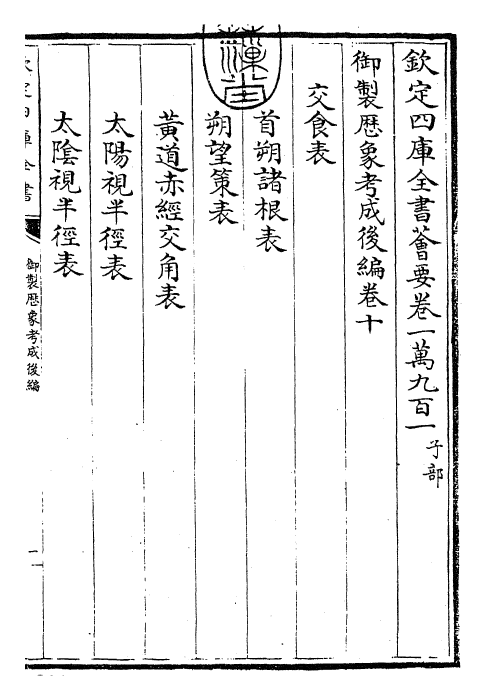 欽定四庫全書薈要卷一萬九百一 子部
御製歷象考成後編卷十
交食表
首朔諸根表
朔望策表
黃道赤經交角表
太陽視半徑表
太陰視半徑表
欽定四庫全書
御製歷象考成後編
一